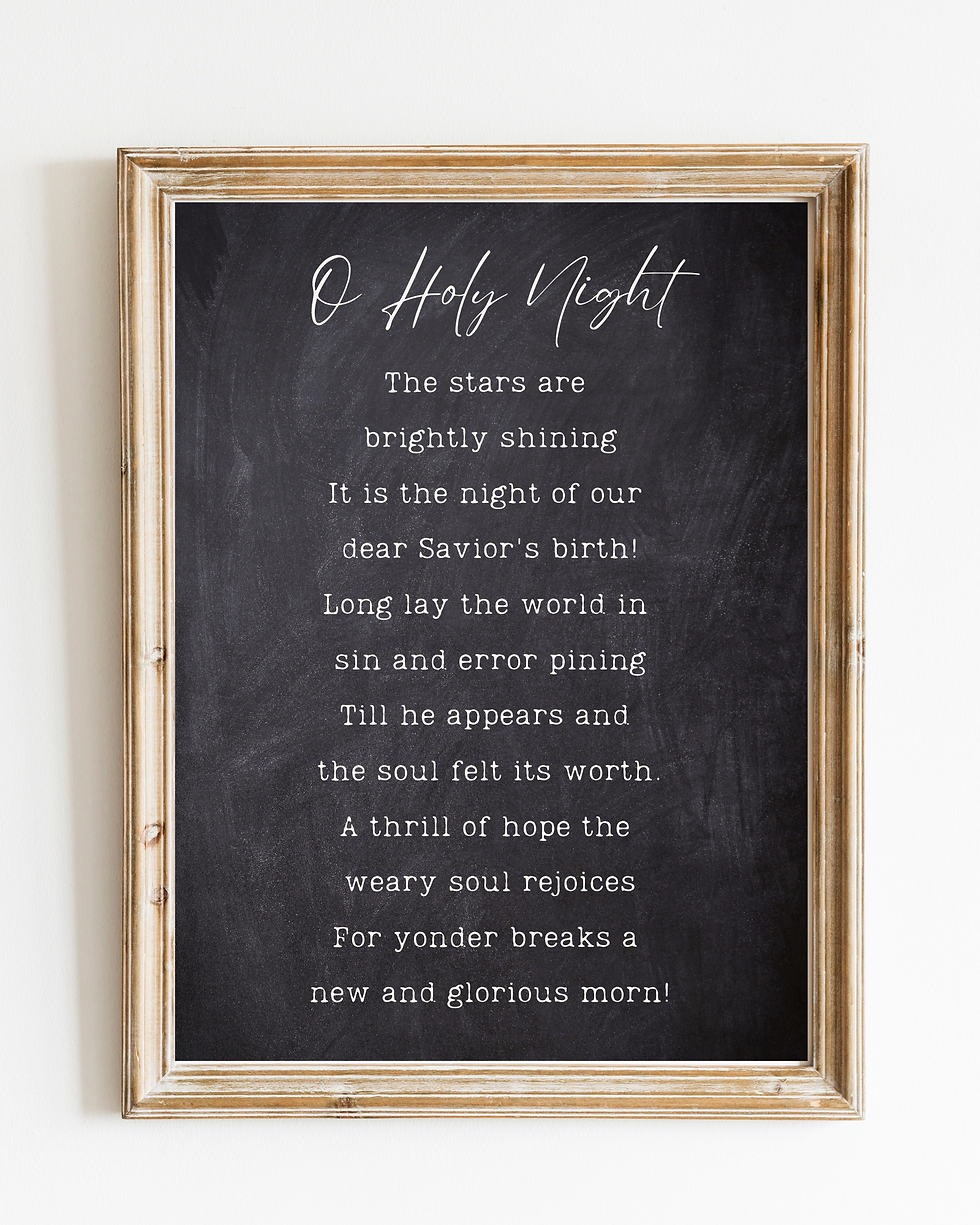 O Holy Night
The stars are
brightly shining
It is the night of our
dear Savior's birth!
Long lay the world in
sin and error pining
Till he appears and
the soul felt its worth.
A thrill of hope the
weary soul rejoices
For yonder breaks a
new and glorious morn!